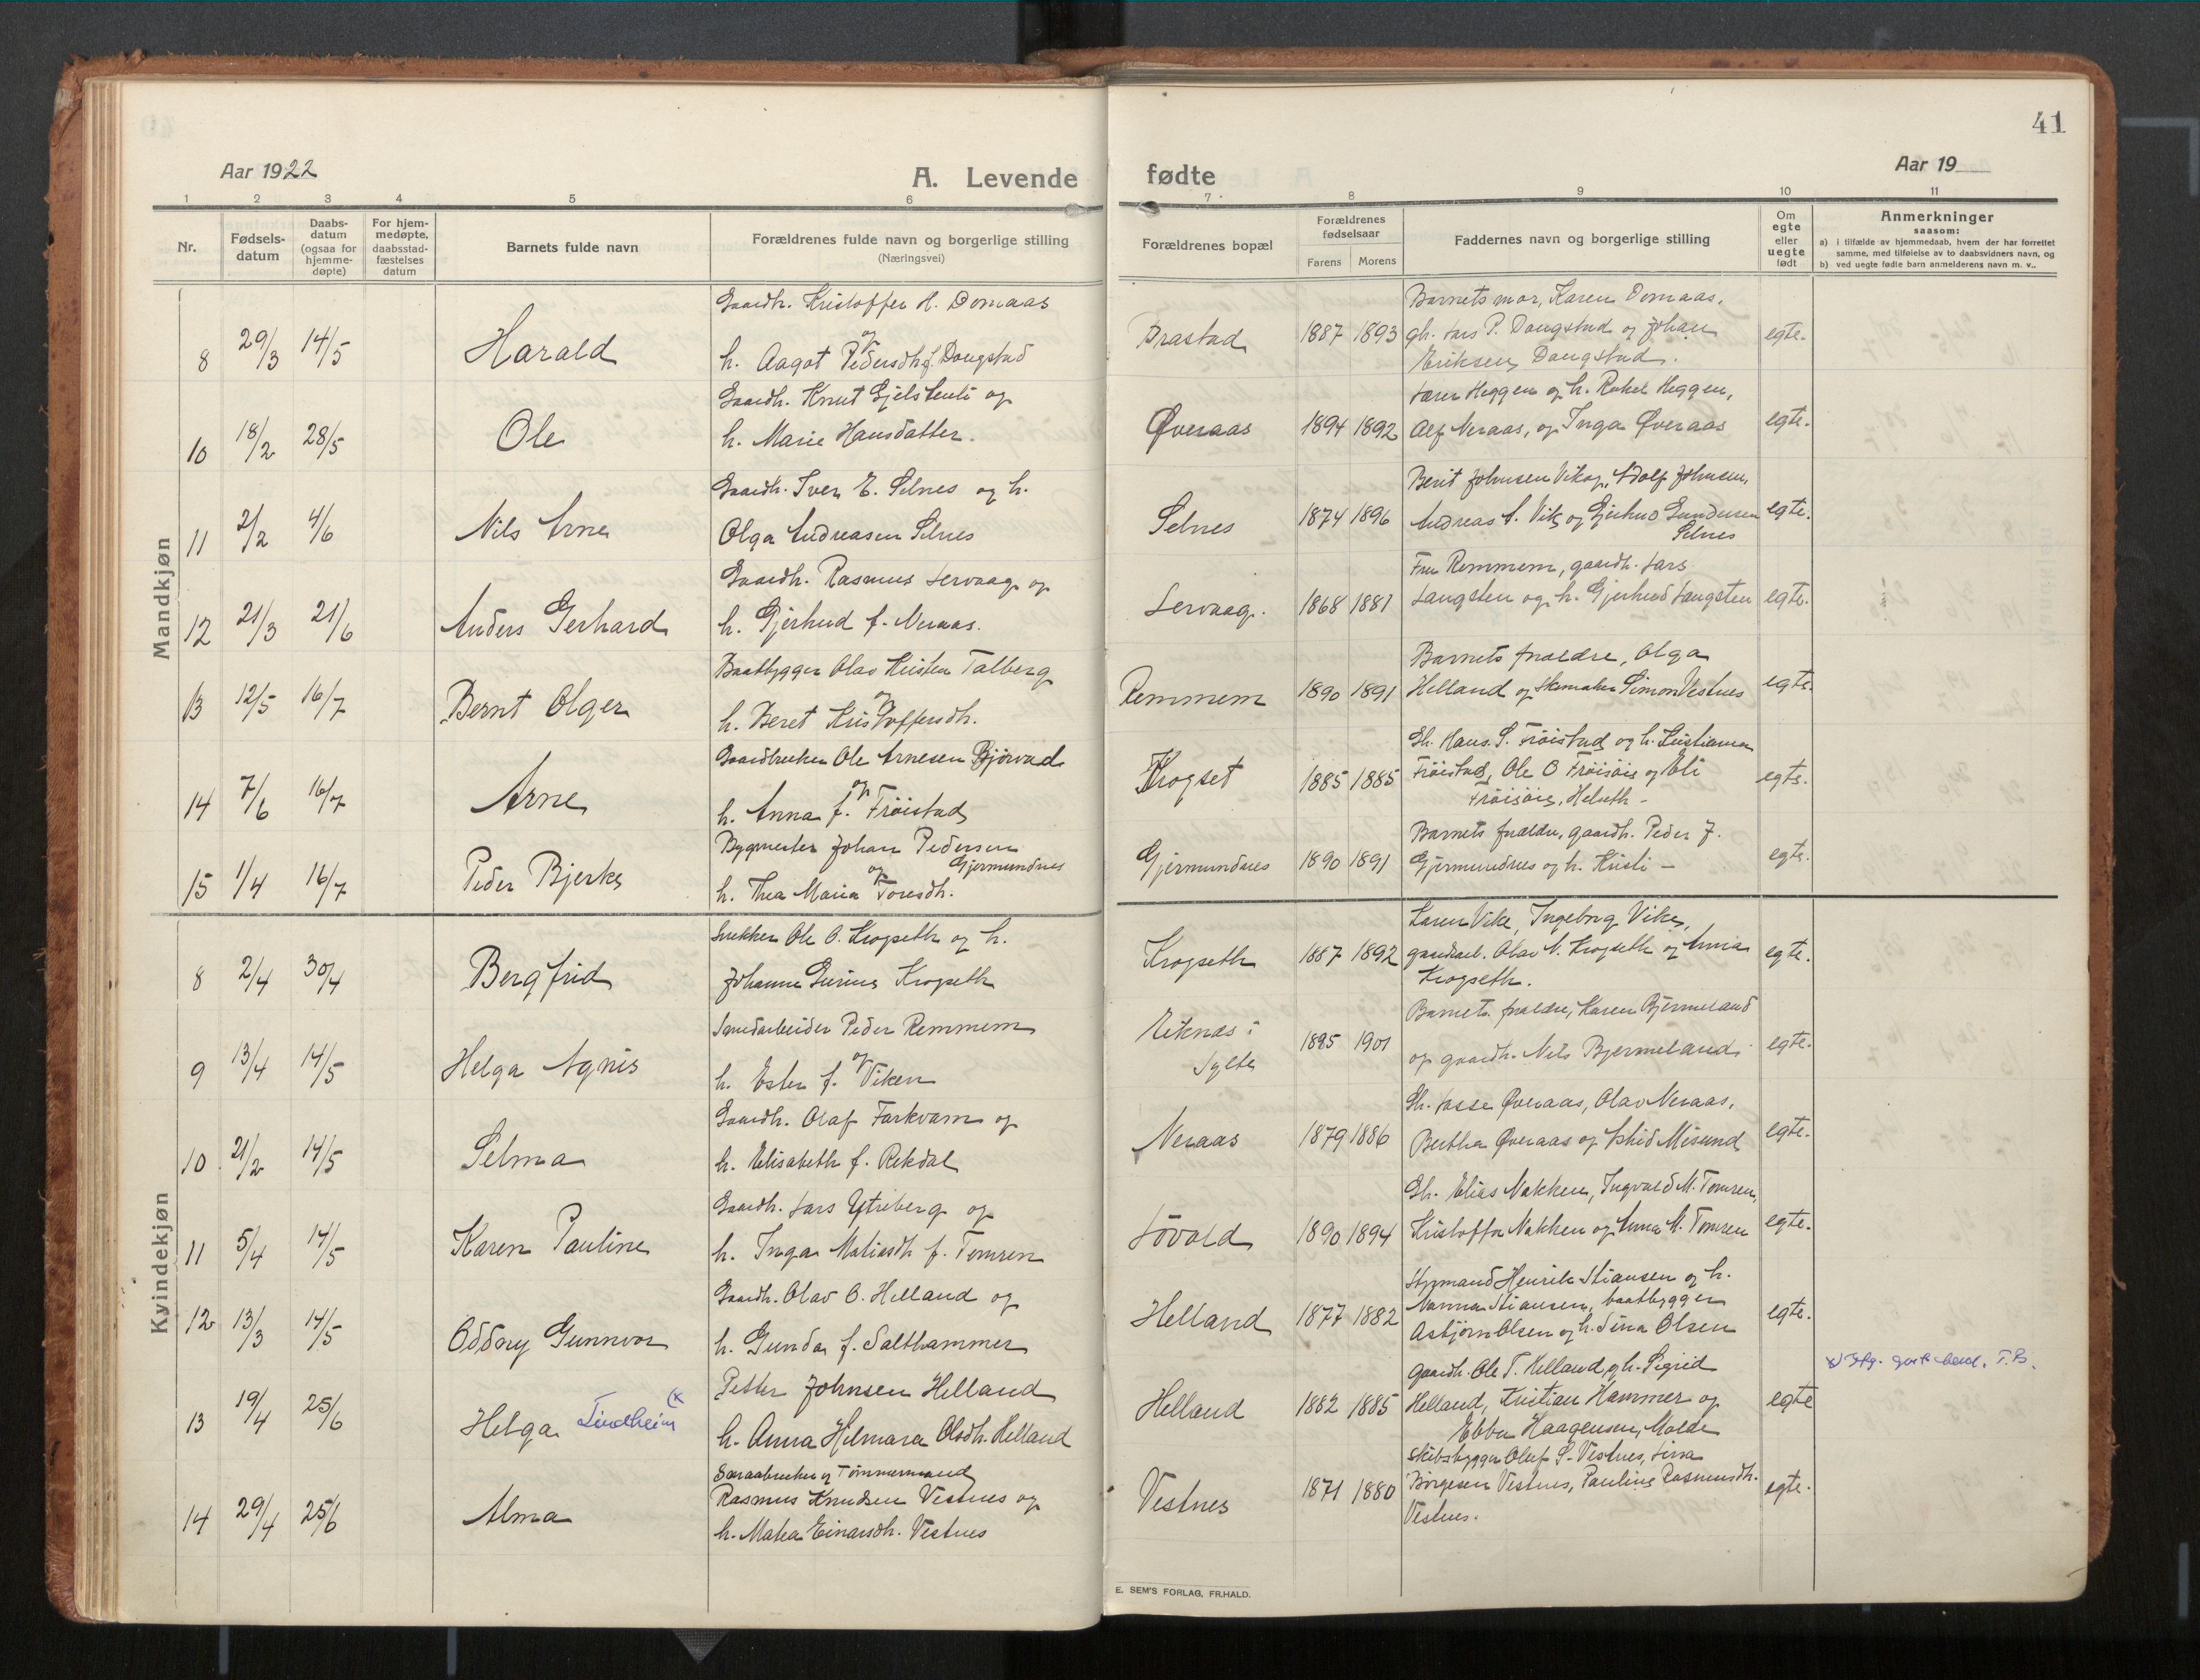 41
Aar 1922
A. Levende fødte
Aar 19
1 2 3 4 5 6 7 8 9 10 11
Nr.
Fødsels-
datum
Daabs-
datum
(ogsaa for
hjemme-
døpte)
For hjem-
medøpte,
daabsstad-
fæstelses
datum
Barnets fulde navn
Forældrenes fulde navn og borgerlige stilling
(Næringsvei)
Forældrenes bopæl
Forældrenes
fødselsaar
Farens Morens
Faddernes navn og borgerlige stilling
Om
egte
eller
uegte
født
Anmerkninger
saasom:
a) i tilfælde av hjemmedaab, hvem der har forrettet
samme, med tilføielse av to daabsvidners navn, og
b) ved uegte fødte barn anmelderens navn m. v..
Mandkjøn
8 29/3 14/5 Harald
Gaardbr. Kristoffer H. Domaas
og
h. Aagot Pedersdtr. f. Dougstad
Brastad 1887 1893
Barnets mor, Karen Domaas,
gh. Lars P. Dougstad og Johan
Eriksen Dougstad.
egte.
10 18/2 28/5 Ole
Gaardb. Knut Gjelstenli og
h. Marie Hansdatter.
Øveraas 1894 1892
Lærer Heggen og h. Rakel Heggen,
Alf Neraas, og Inga Øveraas
egte.
11 2/2 4/6 Nils Arne
Gaardb. Iver E. Selnes og h.
Olga Andreasen Selnes
Selnes 1874 1896
Berit Johnsen Vik og Adolf Johnsen,
Andreas A. Vik og Gjerhud Gundersen
Selnes
egte.
12 21/3 21/6 Anders Gerhard
Gaardb. Rasmus Lervaag og
h. Gjerhud f. Neraas.
Lervaag. 1868 1881
Fru Remmem, gaardb. Lars
Langsten og h. Gjerhud Langsten
egte.
13 12/5 16/7 Bernt Olger
Baatbygger Olav Kristen Talberg
og
h. Beret Kristoffersdtr.
Remmem 1890 1891
Barnets forældre, Olga
Helland og Skomaker Simon Vestnes
egte.
14 7/6 16/7 Arne
Gaardbruker Ole Arnesen Bjørvad
og
h. Anna f. Frøistad
Krogset 1885 1885
Gb. Hans S. Frøistad og h. Kristianna
Frøistad, Ole O Frøisøie og Eli
Frøisøie,
egte.
15 1/4 16/7 Peder Bjerke
Bygmester Johan Pedersen
og Gjermundnes
h. Thea Maria Toresdtr.
Gjermundnes 1890 1891
Barnets forældre, gaardb. Peder J.
Gjermundnes og h. Kristi –
egte.
Kvindekjøn
8 2/4 30/4 Bergfrid
Snekker Ole O. Krogseth og h.
Johanne Gurine Krogseth
Krogseth 1887 1892
Karen Vike, Ingeborg Vike,
gaardarb. Olav N. Krogseth og Anna
Krogseth.
egte.
9 13/4 14/5 Helga Agnes
Peder Remmem
og
h. Ester f. Viken
Reknes i
Sylte
1895 1901
Barnets forældre, Karen Bjermeland
og gaardb. Nils Bjermeland.
egte.
10 21/2 14/5 Selma
Gaardb. Olaf Farkvam og
h. Elisabeth f. Rekdal
Neraas 1879 1886
Gb. Lasse Øveraas, Olav Neraas,
Bertha Øveraas og Misund
egte.
11 5/4 14/5 Karen Pauline
Gaardb. Lars Ytreberg og
h. Inga Matiasdtr f. Tomren
Løvold 1890 1894
Gb. Elias Nakken, Ingvald M. Tomren,
Kristoffa Nakken og Anna M. Tomren
egte.
12 13/3 14/5 Oddny Gunnvor
Gaardb. Olav O. Helland og
h. Gunda f. Salthammer
Helland 1877 1882
Styrmand Henrik Stiansen og h.
Nanna Stiansen, baatbygger
Asbjørn Olsen og h. Lina Olsen
egte.
13 19/4 25/6 Helga Lindheim (x
Petter Johnsen Helland
h. Anna Hilmara Olsdtr. Helland
Helland 1882 1885
Gaardb. Ole T. Helland og h. Sigrid
Helland, Kristian Hammer og
Ebba Haagensen, Molde
egte
14 29/4 25/6 Alma
og Tømmermand
Rasmus Knudsen Vestnes og
h. Matea Einarsdtr. Vestnes
Vestnes 1871 1880
Skibsbygger Oluf S. Vestnes, Lina
Børgesen Vestnes, Pauline Rasmusdtr.
Vestnes.
egte.
E. SEM'S FORLAG, FR.HALD.